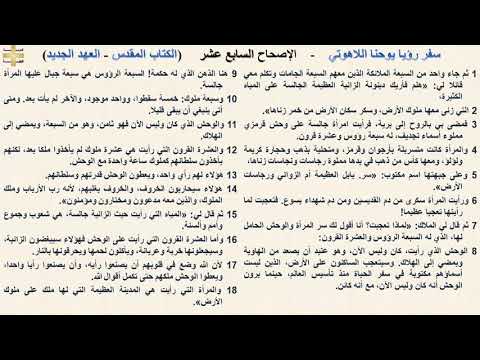 سفر رؤيا يوحنا اللاهوتي - الإصحاح السابع عشر (الكتاب المقدس - العهد الجديد)
1 ثم جاء واحد من السبعة الملائكة الذين معهم السبعة الجامات وتكلم معي
قائلا لي: «هلم فأريك دينونة الزانية العظيمة الجالسة على المياه
الكثيرة،
2 التي زنى معها ملوك الأرض، وسكر سكان الأرض من خمر زناها».
3 فمضى بي بالروح إلى برية، فرأيت امرأة جالسة على وحش قرمزي
مملوء أسماء تجديف، له سبعة رؤوس وعشرة قرون.
4 والمرأة كانت متسربلة بأرجوان وقرمز، ومتحلية بذهب وحجارة كريمة
ولؤلؤ، ومعها كأس من ذهب في يدها مملوة رجاسات ونجاسات زناها،
5 وعلى جبهتها اسم مكتوب: «سر. بابل العظيمة أم الزواني ورجاسات
الأرض».
6 ورأيت المرأة سكرى من دم القديسين ومن دم شهداء يسوع. فتعجبت لما
رأيتها تعجبا عظيما!
7 ثم قال لي الملاك: «لماذا تعجبت؟ أنا أقول لك سر المرأة والوحش الحامل
لها، الذي له السبعة الرؤوس والعشرة القرون:
8 الوحش الذي رأيت، كان وليس الآن، وهو عتيد أن يصعد من الهاوية
ويمضي إلى الهلاك. وسيتعجب الساكنون على الأرض، الذين ليست
أسماؤهم مكتوبة في سفر الحياة منذ تأسيس العالم، حينما يرون
الوحش أنه كان وليس الآن، مع أنه كائن.
9 هنا الذهن الذي له حكمة! السبعة الرؤوس هي سبعة جبال عليها المرأة
جالسة.
10 وسبعة ملوك: خمسة سقطوا، وواحد موجود، والآخر لم يأت بعد. ومتى
أتى ينبغي أن يبقى قليلا.
11 والوحش الذي كان وليس الآن فهو ثامن، وهو من السبعة، ويمضي إلى
الهلاك.
12 والعشرة القرون التي رأيت هي عشرة ملوك لم يأخذوا ملكا بعد، لكنهم
يأخذون سلطانهم كملوك ساعة واحدة مع الوحش.
13 هؤلاء لهم رأي واحد، ويعطون الوحش قدرتهم وسلطانهم.
14 هؤلاء سيحاربون الخروف، والخروف يغلبهم، لأنه رب الأرباب وملك
الملوك، والذين معه مدعوون ومختارون ومؤمنون».
15 ثم قال لي: «المياه التي رأيت حيث الزانية جالسة، هي شعوب وجموع
وأمم وألسنة.
16 وأما العشرة القرون التي رأيت على الوحش فهؤلاء سيبغضون الزانية،
وسيجعلونها خربة وعريانة، ويأكلون لحمها ويحرقونها بالنار.
17 لأن الله وضع في قلوبهم أن يصنعوا رأيه، وأن يصنعوا رأيا واحدا،
ويعطوا الوحش ملكهم حتى تكمل أقوال الله.
18 والمرأة التي رأيت هي المدينة العظيمة التي لها ملك على ملوك
الأرض».